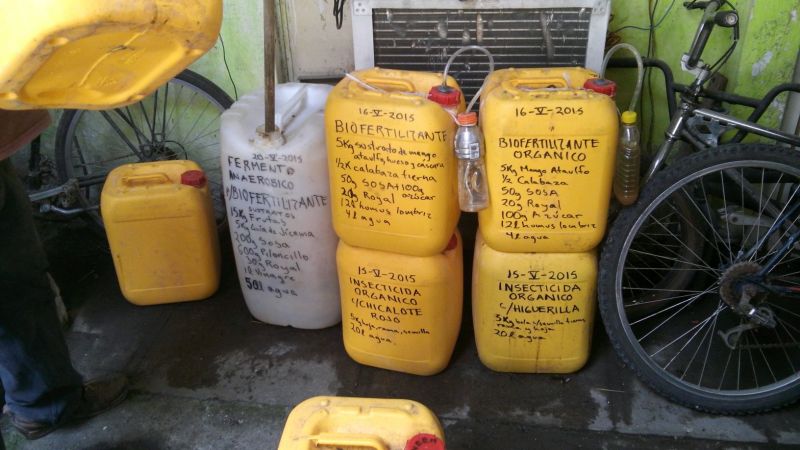 20-V-2015
FERMENTO
ANAEROBICO
BIOFERTILIZANTE
15Kg Frutas
5Kg Guia de Jicama
200g Sosa
600g Piloncillo
50g Royal
1L Vinagre
50L agua
16-V-2015
BIOFERTILIZANTE
5Kg sustrato de mango
ataulfo, hueso y cascara
1/2K Calabaza tierna
50g SOSA + 100g
20g Royal azúcar
12L humus lombriz
4L agua
16-V-2015
BIOFERTILIZANTE
ORGANICO
5Kg Mango Ataulfo
1/2 Calabaza
50g SOSA
20g Royal
100g Azúcar
12L humus lombriz
4L agua
15-V-2015
INSECTICIDA
ORGANICO
C/CHICALOTE
ROJO
5K hoja, rama, semilla
20L agua.
15-V-2015
INSECTICIDA
ORGANICO
C/HIGUERILLA
5Kg
20L agua